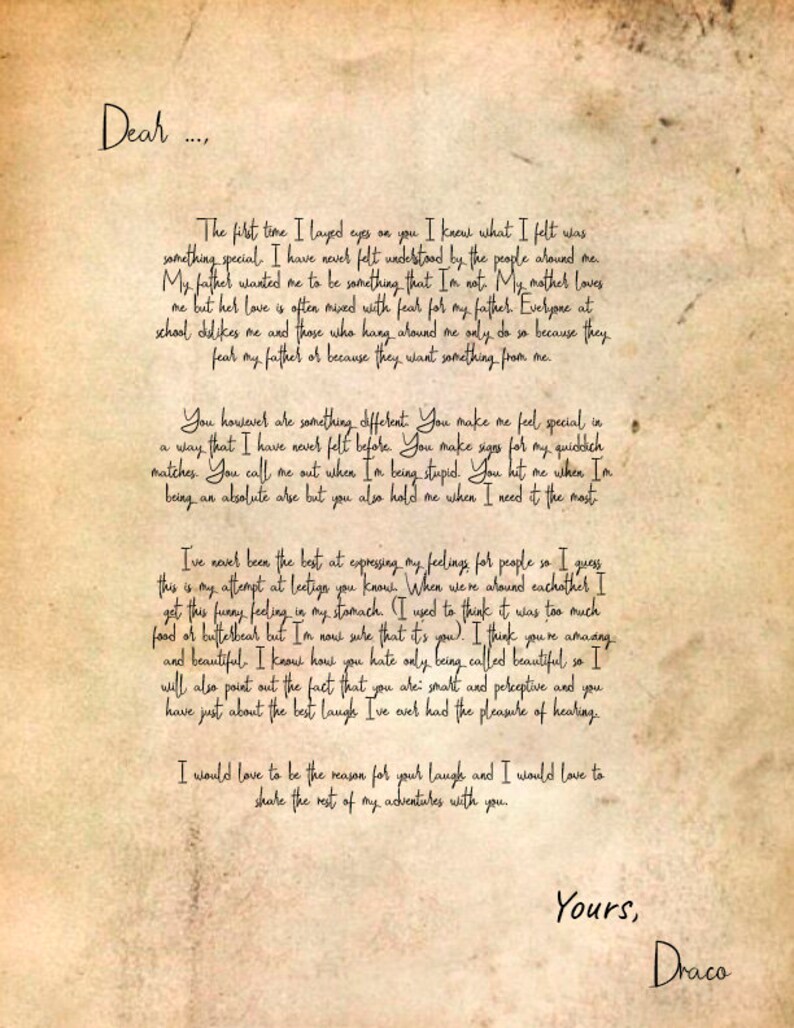 Dear ...,
The first time I layed eyes on you I knew what I felt was
something special. I have never felt understood by the people around me.
My father wanted me to be something that I'm not. My mother loves
me but her love is often mixed with fear for my father. Everyone at
school dislikes me and those who hang around me only do so because they
fear my father or because they want something from me.
You however are something different. You make me feel special in
a way that I have never felt before. You make signs for my quiddich
matches. You call me out when I'm being stupid. You hit me when I'm
being an absolute arse but you also hold me when I need it the most.
I've never been the best at expressing my feelings for people so I guess
this is my attempt at leetign you know. When we're around eachother I
get this funny feeling in my stomach. (I used to think it was too much
food or butterbear but I'm now sure that it's you). I think you're amazing
and beautiful. I know how you hate only being called beautiful so I
will also point out the fact that you are: smart and perceptive and you
have just about the best laugh I've ever had the pleasure of hearing.
I would love to be the reason for your laugh and I would love to
share the rest of my adventures with you.
Yours,
Draco